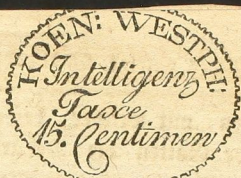 KOEN: WESTPH:
Intelligenz
Taxe
15. Centimen